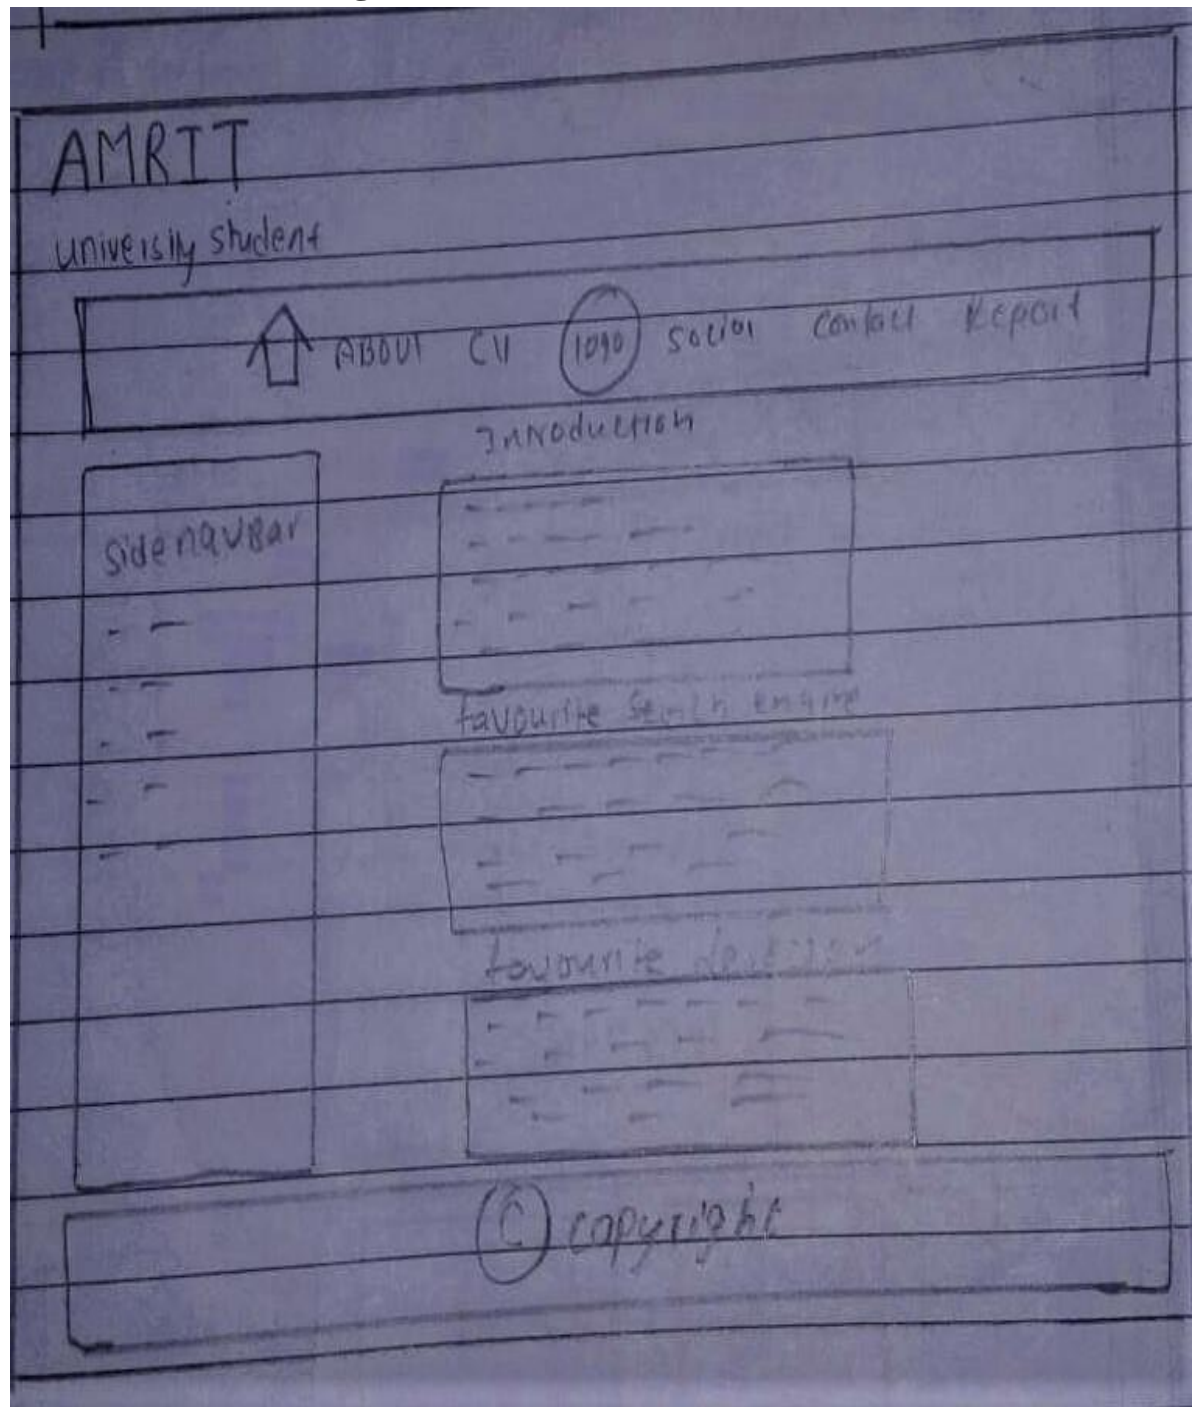 AMRIT
university student
ABOUT CV logo social Contact Report
Introduction
sidenavBar
favourite Search Engine
favourite
© copyright